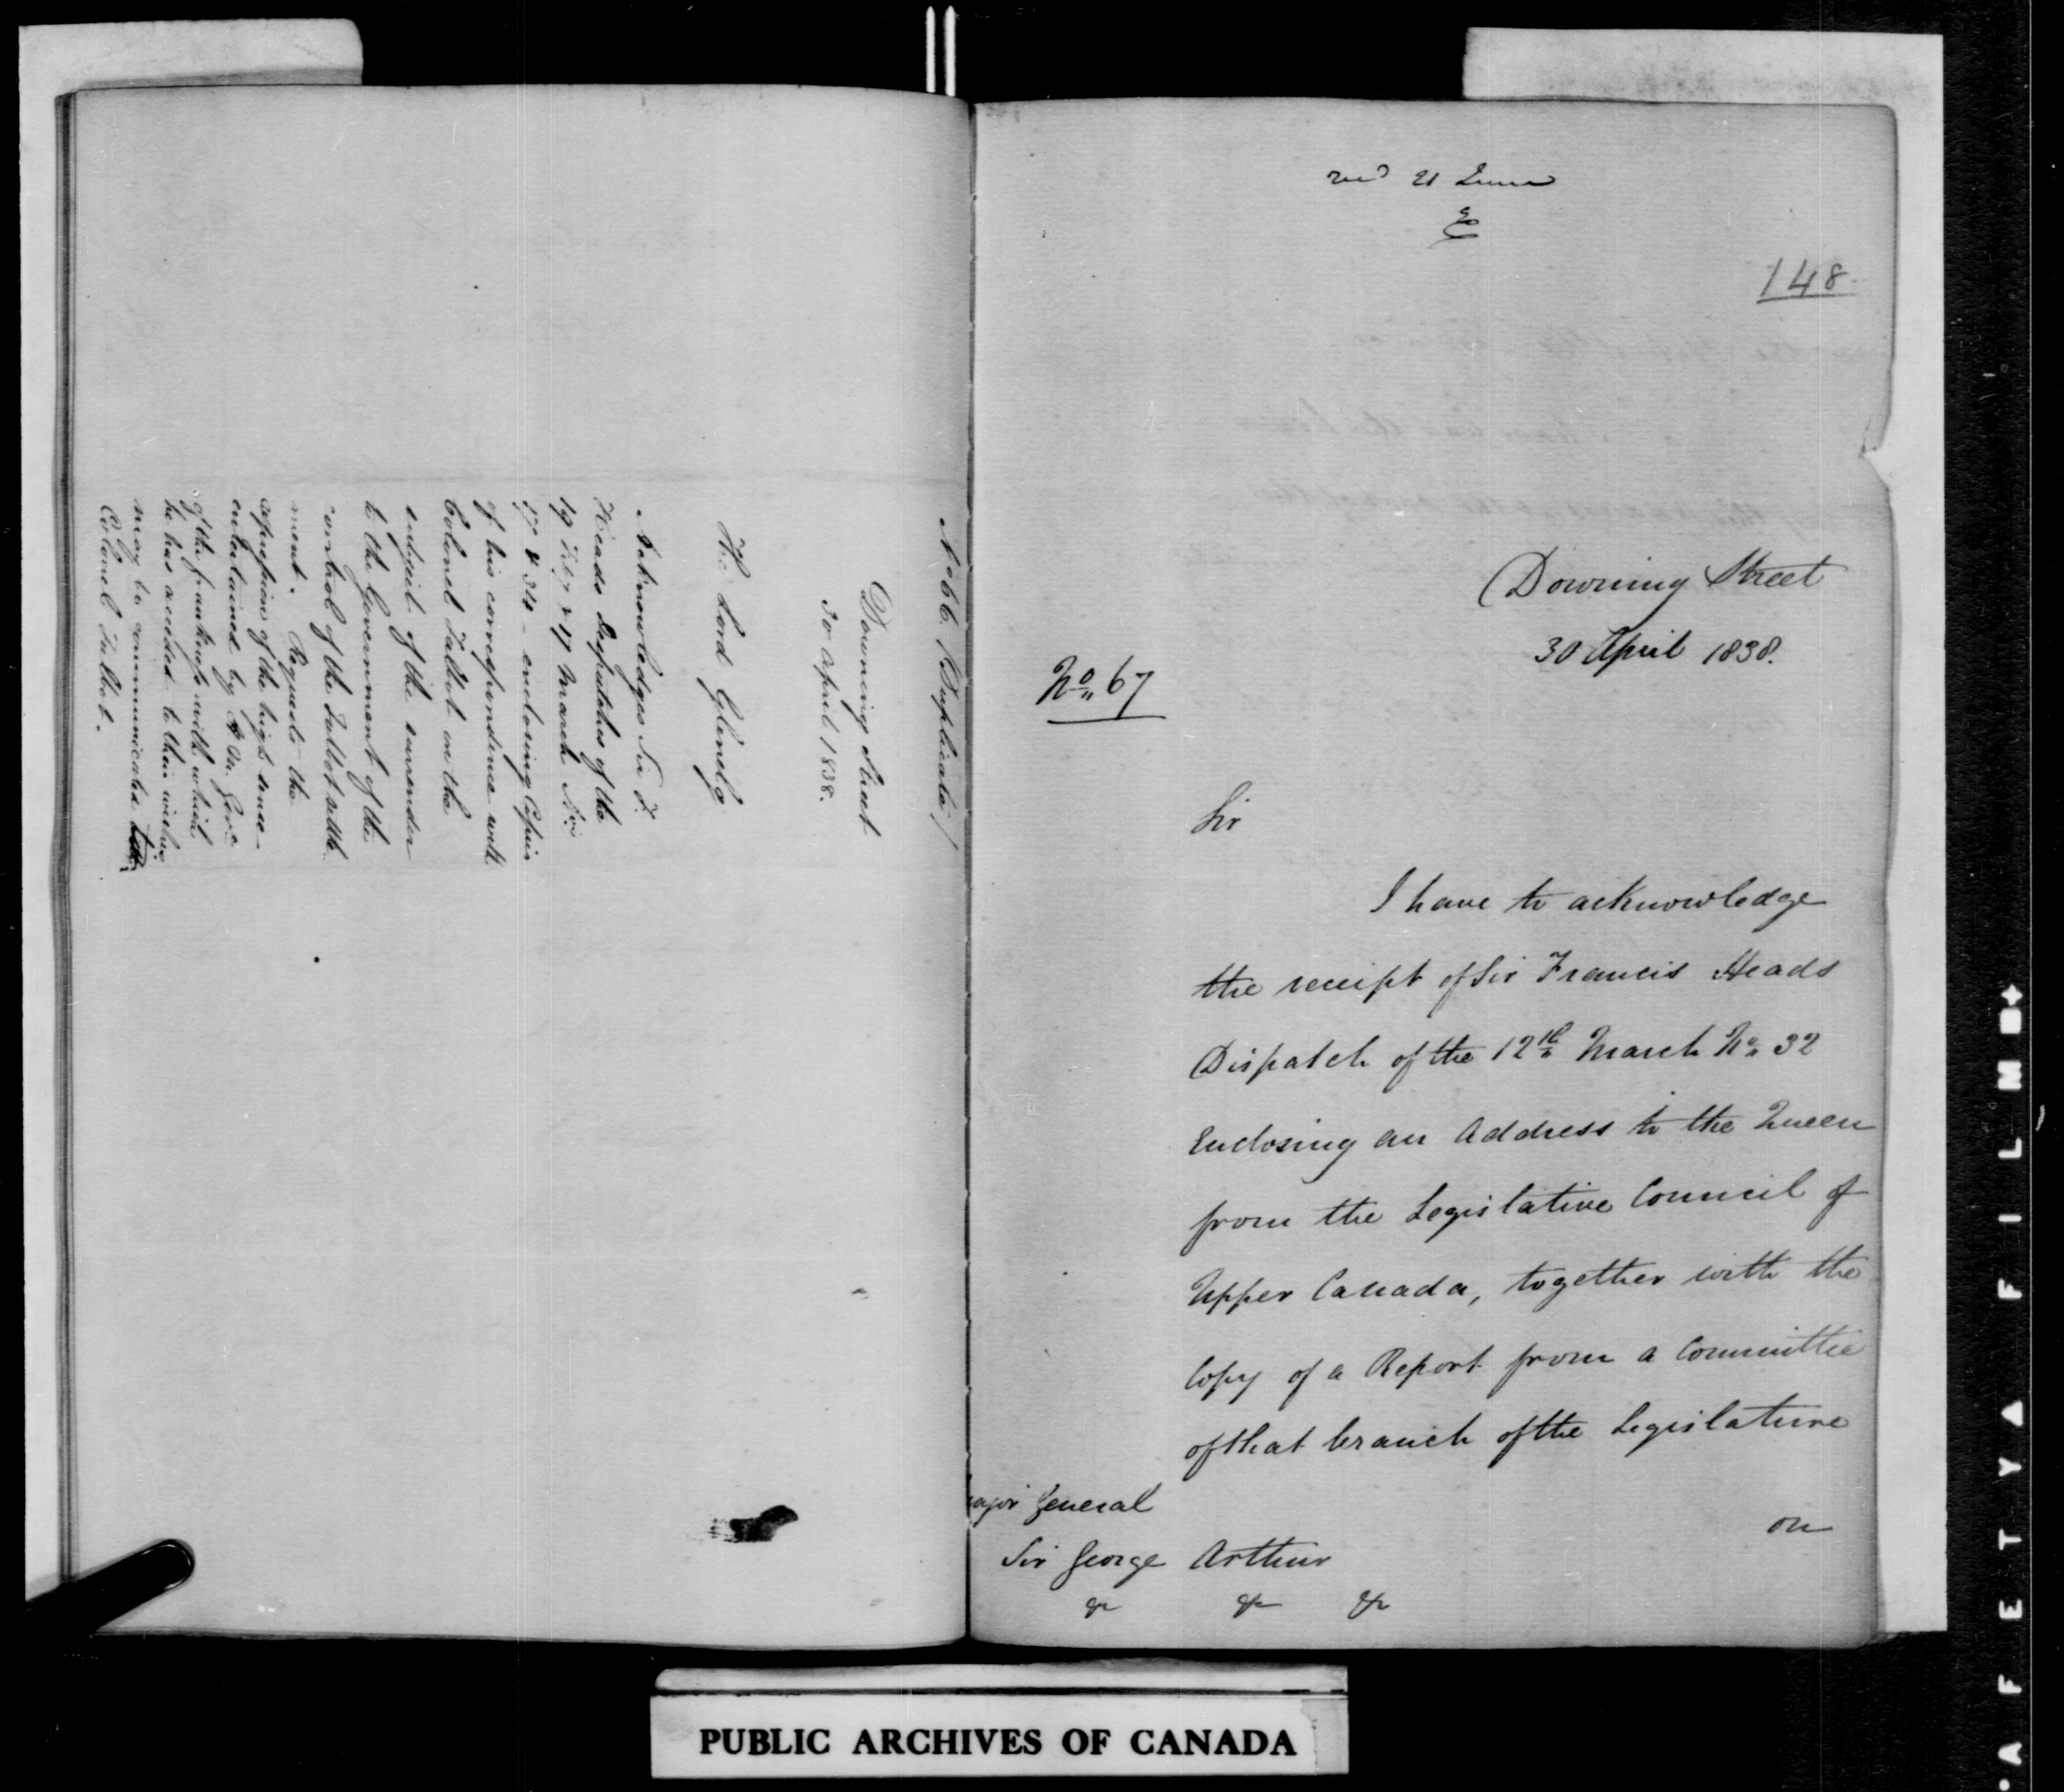 No 66. (Duplicate)
Downing Street
30 April 1838.
The Lord Glenelg
Acknowledges Sir F.
Heads Despatches of the
19 Feby & 17 March Nos
17 & 34 - enclosing Copies
of his correspondence with
Colonel Talbot on the
subject of the surrender
to the Government of the
control of the Talbot settle
ment. Requests the
expression of the high sense
entertained by H.M. Govt
of the frankness with which
he has acceded to their wishes
may be communicated to
Colonel Talbot.
recd 21 June
148
Downing Street
30 April 1838.
No 67
Sir
I have to acknowledge
the receipt of Sir Francis Heads
Dispatch of the 12th March No 32
Enclosing an Address to the Queen
from the Legislative Council of
Upper Canada, together with the
Copy of a Report from a Committee
of that branch of the Legislature
on
Major General
Sir George Arthur
&c &c &c
PUBLIC ARCHIVES OF CANADA
SAFETY FILM